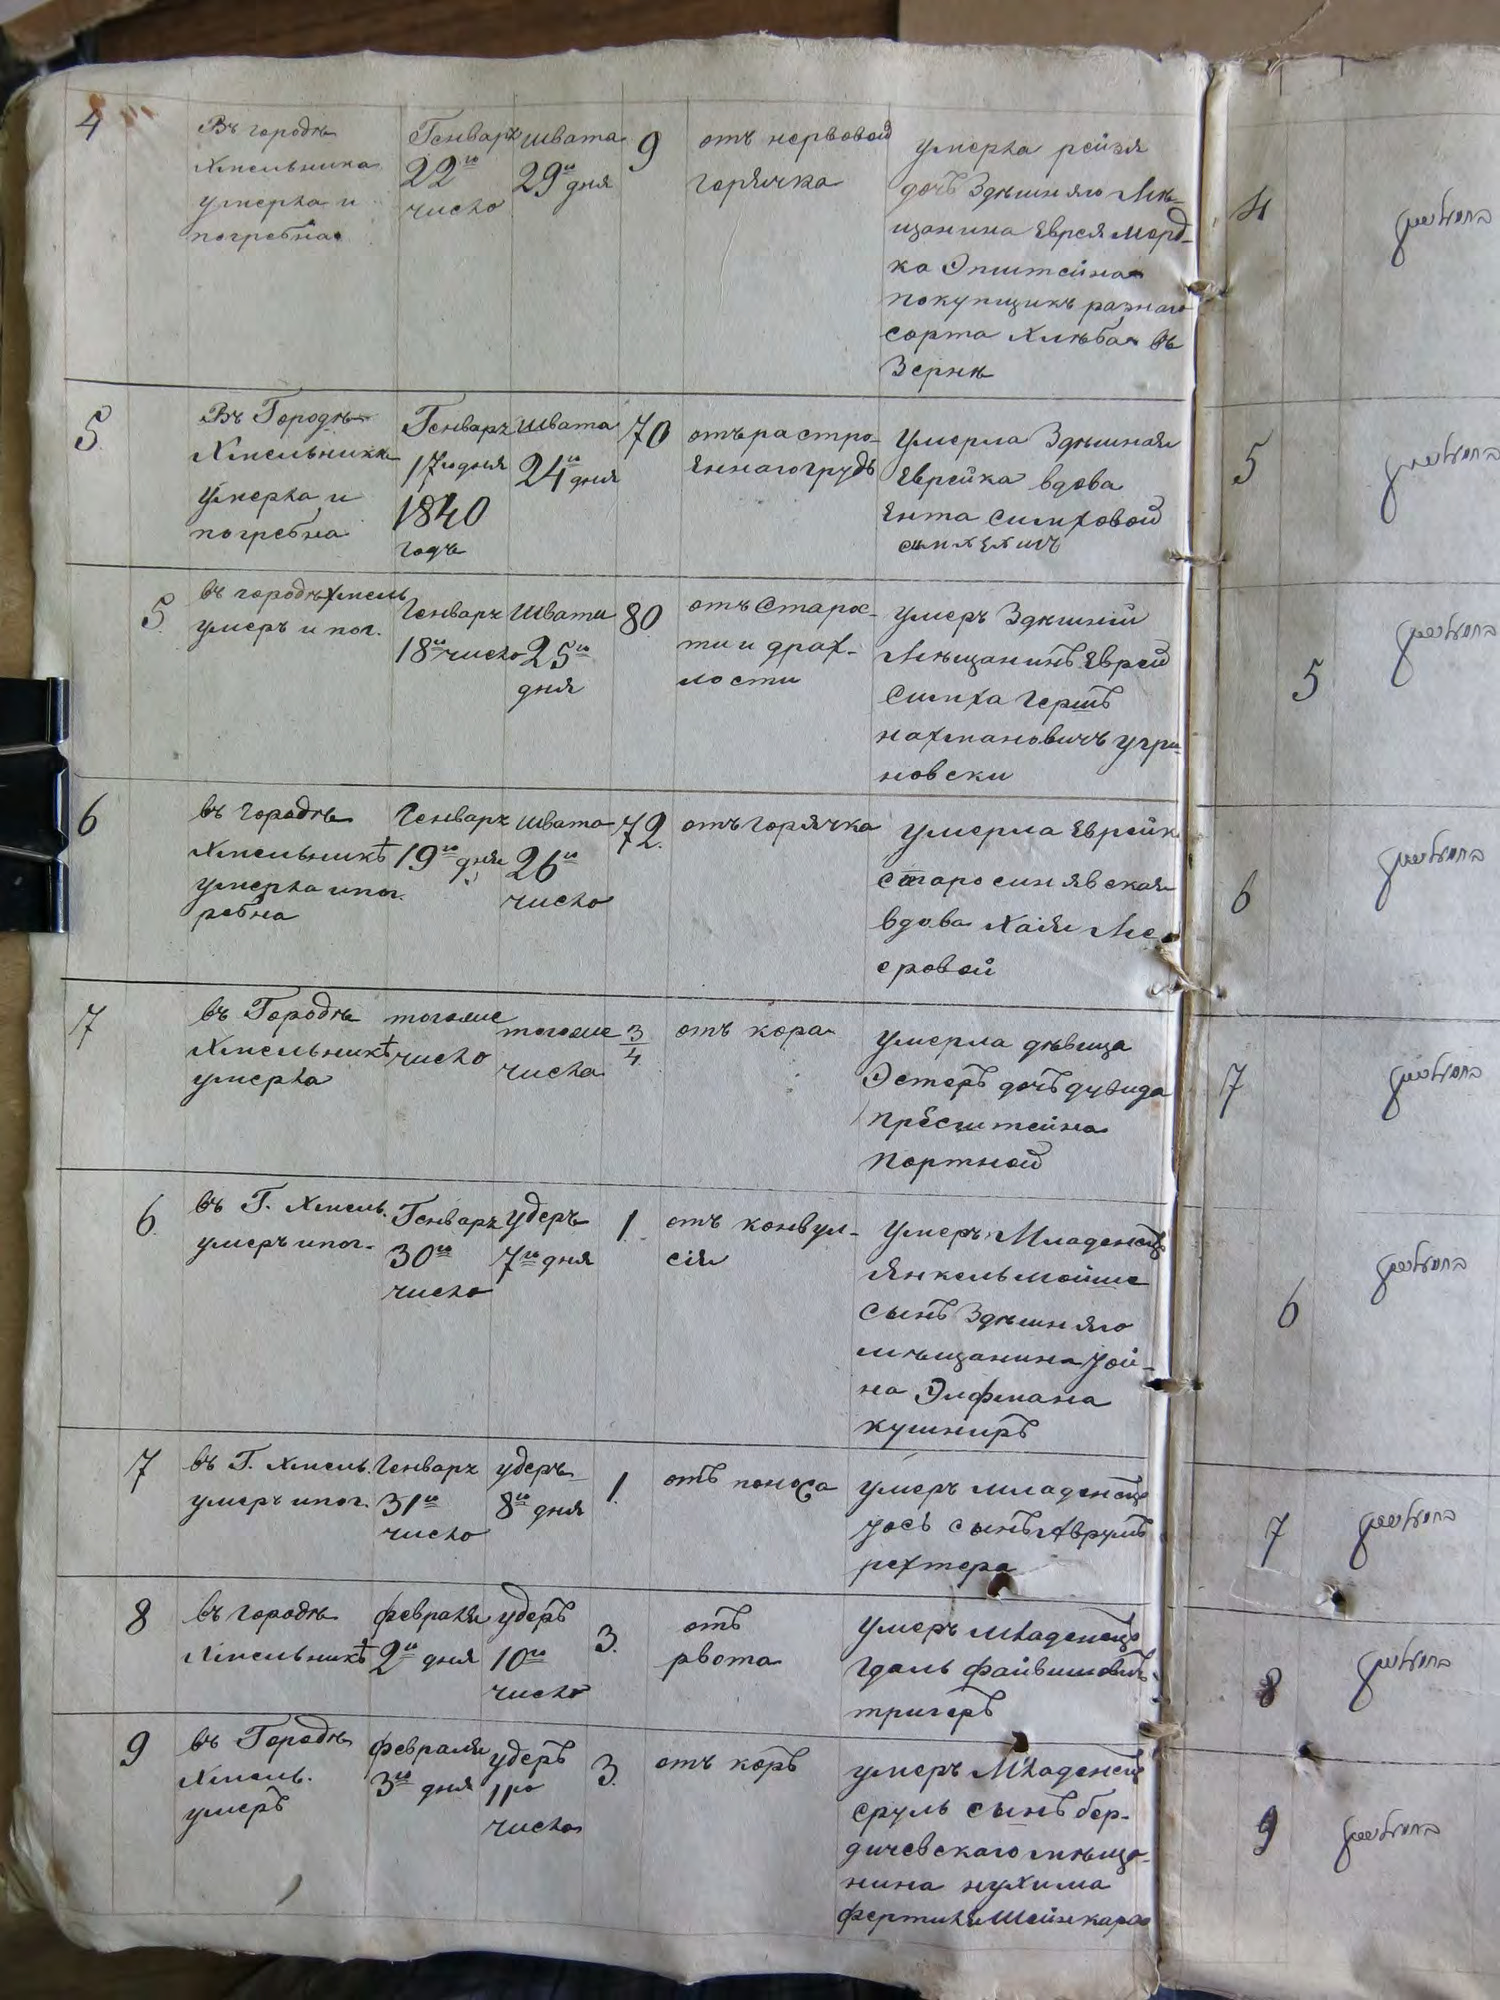 4
Въ городѣ
Хмельника
умерла и
погребна
Генваря
22го
число
швата
29го дня
9
отъ нервовой
горячка
умерла рейзя
дочь Здѣшняго Мѣ-
щанина Еврея Морд-
ка Эпштейна
покупщикъ разнаго
сорта хлѣба въ
Зернѣ
4
5
Въ Городѣ
Хмельникѣ
умерла и
погребна
Генваря
17го дня
1840
годъ
швата
24го дня
70
отъ растро-
еннаго грудь
умерла Здѣшная
Еврейка вдова
Ента симховой
5
5
въ городѣ хмель
умеръ и пог.
Генваря
18го число
Швата
25го
дня
80
отъ старос-
ти и драх-
лости
умеръ Здѣшній
Мѣщанинъ Еврей
Симха Гершъ
нахмановичъ угри-
новски
5
6
въ городѣ
Хмельникѣ
умерла и пог.
ребна
Генваря
19го дня
швата
26го
число
72.
отъ горячка
умерла Еврейк
старосинявская
вдова Хаія Ме
еровой
6
7
въ Городѣ
Хмельникѣ
умерла
тогоже
число
тогоже
числа
3/4
отъ кора
умерла дѣвица
Эстеръ дочь дувида
пресштейна
портной
7
6
въ Г. Хмель.
умеръ и пог.
Генваря
30го
число
удеръ
7го дня
1.
отъ конвул-
сія
умеръ Младенецъ
Янкель мойше
сынъ Здѣшняго
мѣщанина Іой-
на Элфмана
кушниръ
6
7
въ Г. Хмель.
умеръ и пог.
Генваря
31го
число
удеръ
8го дня
1.
отъ поноса
умеръ младенецъ
Іось сынъ Аврумъ
рехтера
7
8
въ городѣ
Хмельникѣ
февраля
2го дня
удеръ
10го
число
3.
отъ
рвота
умеръ младенецъ
Гдаль файвишовичъ
тригеръ
8
9
въ Городѣ
Хмель.
умеръ
февраля
3го дня
удеръ
11го
число
3.
отъ коръ
умеръ Младенецъ
сруль сынъ бер-
дичевскаго мѣща-
нина нухима
фертиля Шейнкара
9